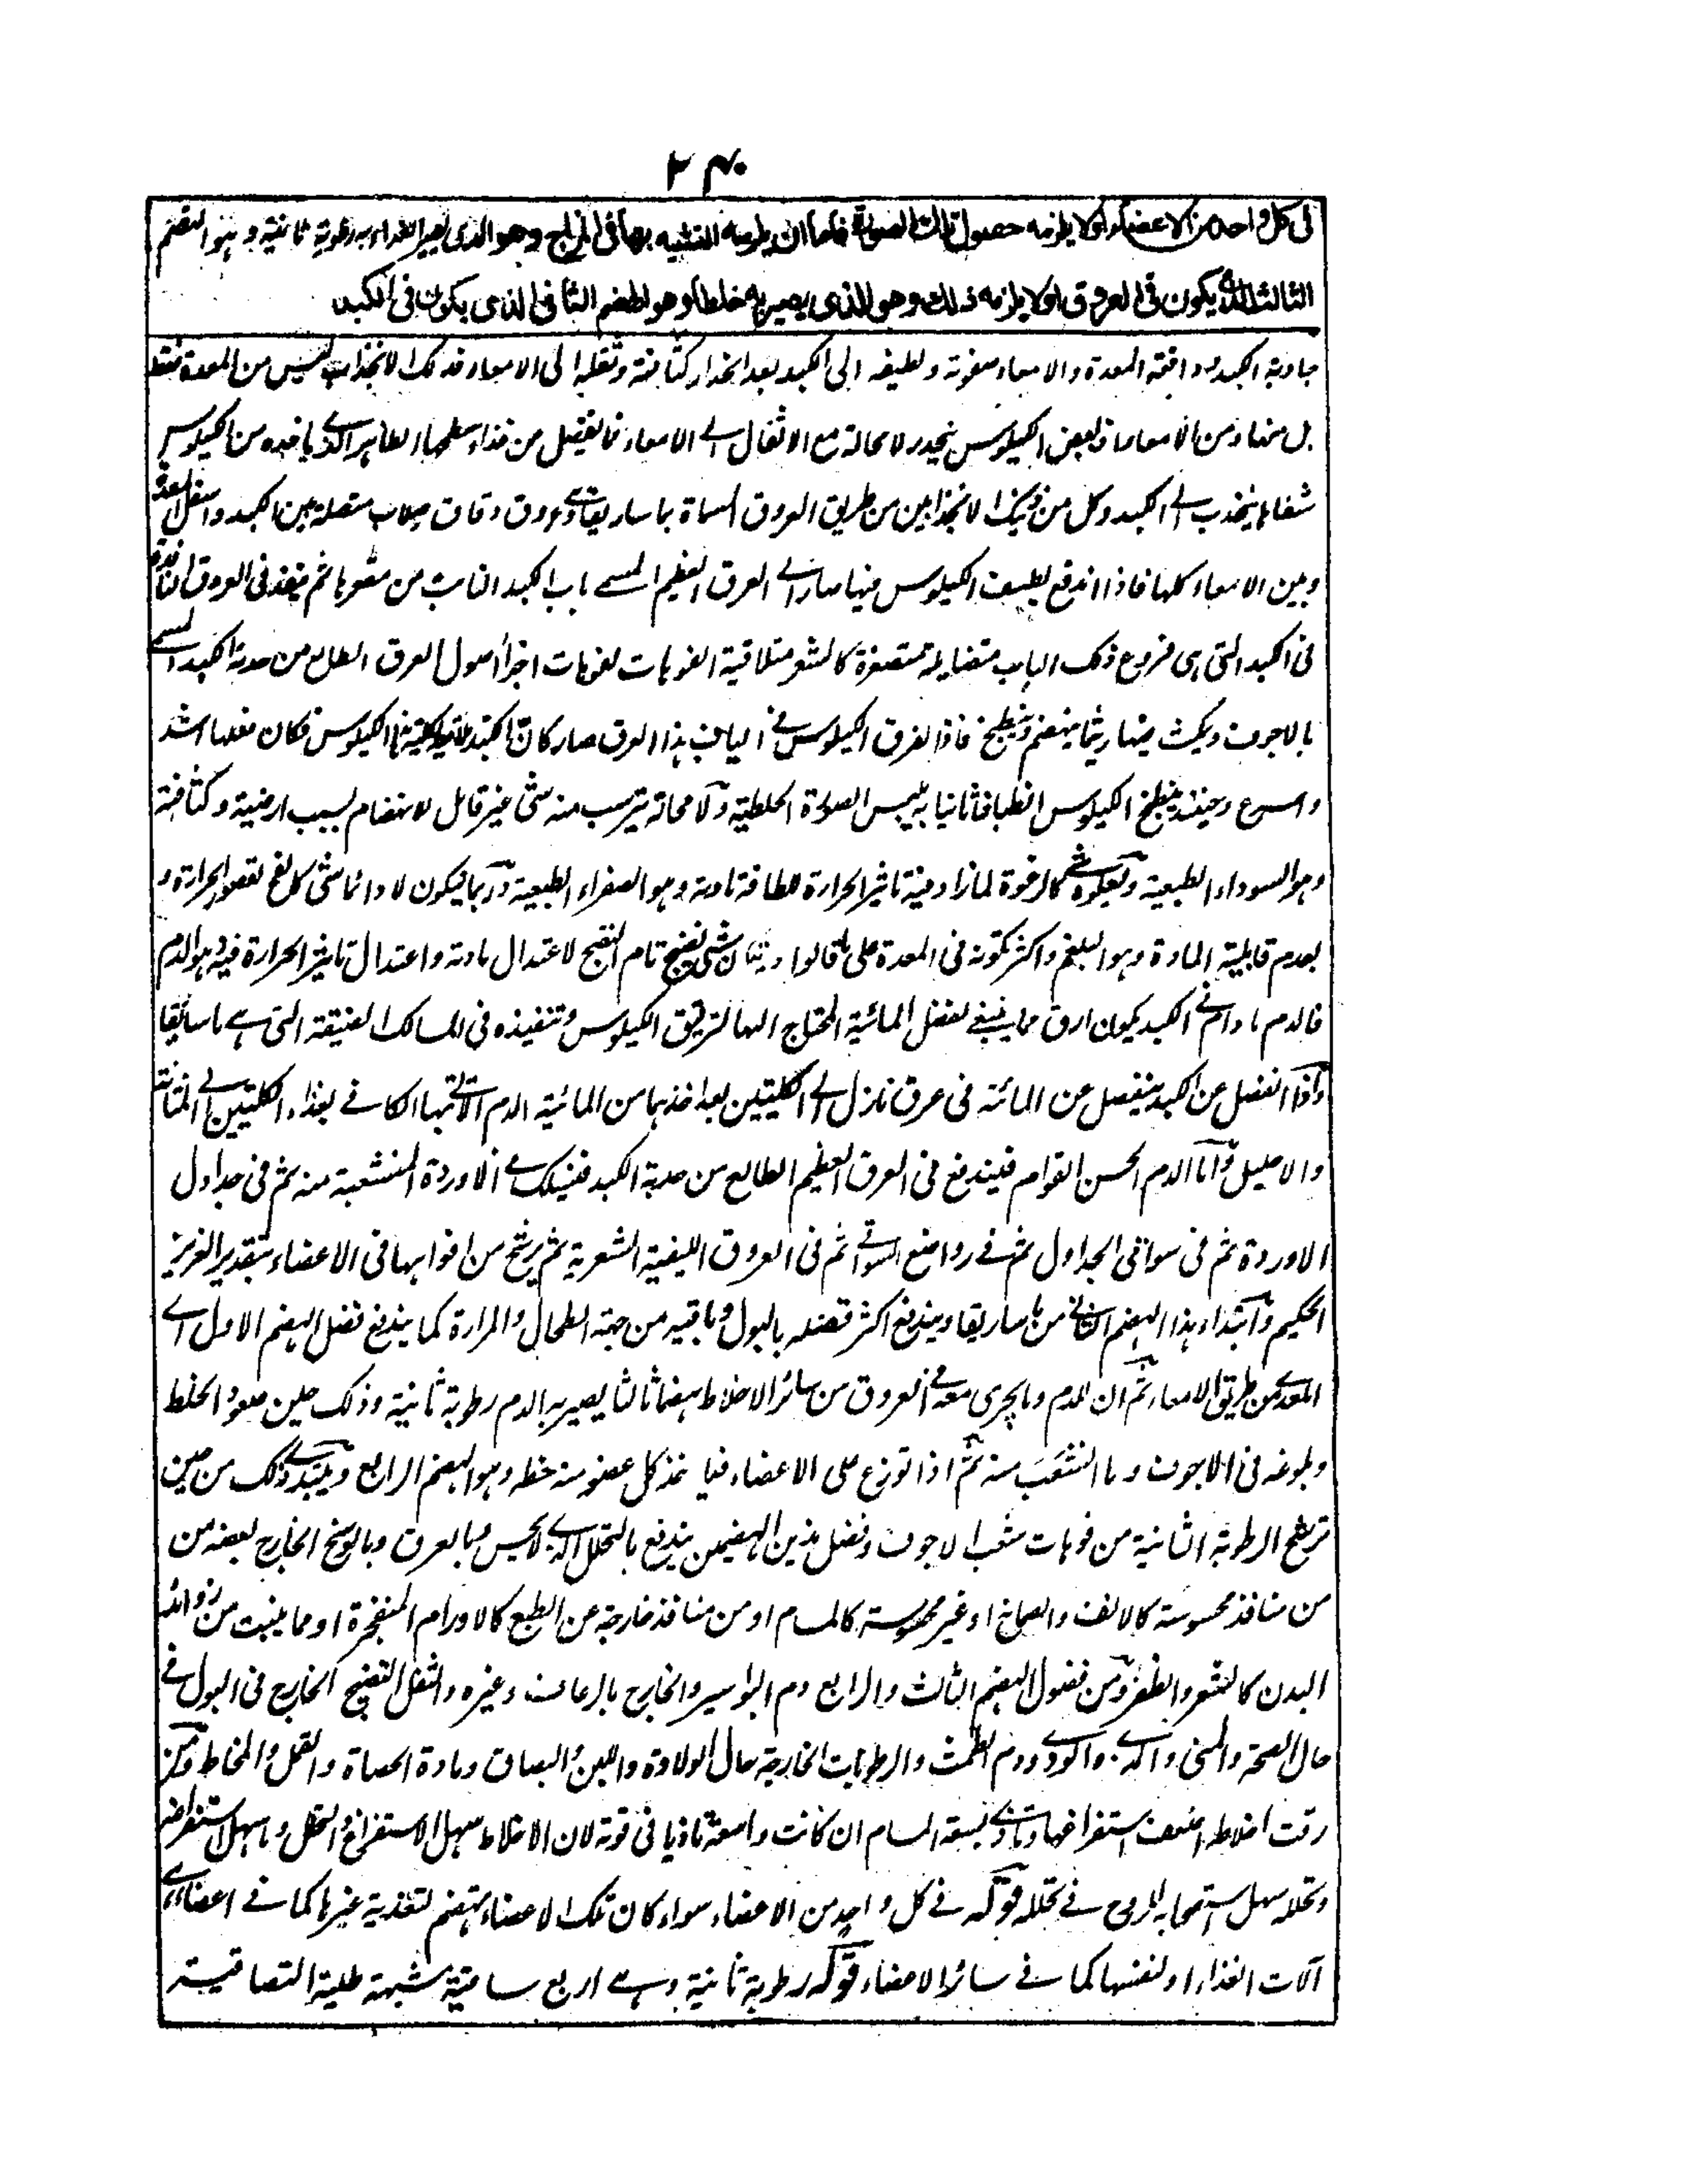 ٢٤٠
فى كل واحد من الاعضاء او لا يلزمه حصول تلك الصورة فاما ان يلزمه التشبيه بها فى المزاج وهو الذى يصير الغذاء به رطوبة ثانية وهو الهضم
الثالث الذى يكون فى العروق او لا يلزمه ذلك وهو الذى يصير به خلطا وهو الهضم الثانى الذى يكون فى الكبد
جاذبة الكبد ودافعة المعدة والامعاء صفوته ولطيفه الى الكبد بعد انحدار كثافته وثقله الى الامعاء وذلك الانجذاب ليس من المعدة فقط
بل منها ومن الامعاء فبعض الكيلوس ينحدر لا محالة مع الاثفال الى الامعاء فما يفضل من غذاء سطحها الظاهر الذى ياخذه من الكيلوس
ينجذب الى الكبد وكل من ذينك الانجذابين من طريق العروق المسماة بماساريقا وهى عروق دقاق صلاب متصلة بين الكبد واسفل المعدة
وبين الامعاء كلها فاذا اندفع لطيف الكيلوس منها صار الى العرق العظيم المسمى باب الكبد النابت من مقعرها ثم ينفذ فى العروق
فى الكبد التى هى فروع ذلك الباب متضايلة متصغرة كالشعر متلاقية الفوهات لفوهات اجزاء اصول العرق الطالع من حدبة الكبد المسمى
بالاجوف ويمكث فيها ريثما ينهضم وينطبخ فاذا تفرق الكيلوس فى الياف هذا العرق صار كان الكبد ملاقية بكليتها الكيلوس فكان فعلها اشد
واسرع وحينئذ ينطبخ الكيلوس انطباخا ثانيا به يلبس الصورة الخلطية ولا محالة يترسب منه شئ غير قابل للانهضام بسبب ارضيته وكثافته
وهو السوداء الطبيعية ويعلوه شئ كالرغوة لما زاد فيه تاثير الحرارة للطافة مادته وهو الصفراء الطبيعية وربما يكون لا دائما شئ كالفج لقصور الحرارة و
لعدم قابلية المادة وهو البلغم واكثر تكونه فى المعدة على ما قالوا شئ نضيج تام النضج لاعتدال مادته واعتدال تاثير الحرارة فيه وهو الدم
فالدم ما دام فى الكبد يكون ارق مما ينبغى لفضل المائية المحتاج اليها لترقيق الكيلوس وتنفيذه فى المسالك الضيقة التى هى ماساريقا
واذا انفصل عن الكبد ينفصل عن المائية فى عرق نازل الى الكليتين بعد اخذهما من المائية الدم الكافى لغذاء الكليتين الى المثانة
والاحليل واما الدم الحسن القوام فيندفع فى العرق العظيم الطالع من حدبة الكبد فيسلك فى الاوردة المنشعبة منه ثم فى جداول
الاوردة ثم فى سواقى الجداول ثم فى رواضع السواقى ثم فى العروق الليفية الشعرية ثم يرشح من افواهها فى الاعضاء بتقدير العزيز
الحكيم وابتداء هذا الهضم الثانى من ماساريقا ويندفع اكثر فضله بالبول وباقيه من جهة الطحال والمرارة كما يندفع فضل الهضم الاول اى
المعدى من طريق الامعاء ثم ان للدم وما يجرى معه فى العروق من سائر الاخلاط هضما ثالثا يصير به الدم رطوبة ثانية وذلك حين صعود الخلط
وبلوغه فى الاجوف وما انشعب منه ثم اذا توزع على الاعضاء فياخذ كل عضو منه حظه وهو الهضم الرابع ويبتدئ ذلك من حين
ترشح الرطوبة الثانية من فوهات شعب الاجوف وفضل هذين الهضمين يندفع بالتحلل الذى لا يحس وبالعرق وبالوسخ الخارج بعضه من
من منافذ محسوسة كالانف والصماخ او غير محسوسة كالمسام او من منافذ خارجة عن الطبع كالاورام المنفجرة او مما ينبت من زوائد
البدن كالشعر والظفر ومن فضول الهضم الثالث والرابع دم البواسير والخارج بالرعاف وغيره والثفل النضيج الخارج فى البول فى
حال الصحة والمنى والمذى والودى ودم الطمث والرطوبات الخارجة حال الولادة واللبن والبصاق ومادة الحصاة والقمل والمخاط ومن
رقت اخلاطه اضعف استفراغها وتاذى بسعة المسام ان كانت واسعة تاذيا فى قوته لان الاخلاط سهل الاستفراغ والتحلل وما سهل استفراغه
وتحلله سهل استصحابه للروح فى تحلله قوله فى كل واحد من الاعضاء سواء كان تلك الاعضاء تهضم لتغذية غيرها كما فى اعضاء
آلات الغذاء او لنفسها كما فى سائر الاعضاء قوله رطوبة ثانية وهى اربع